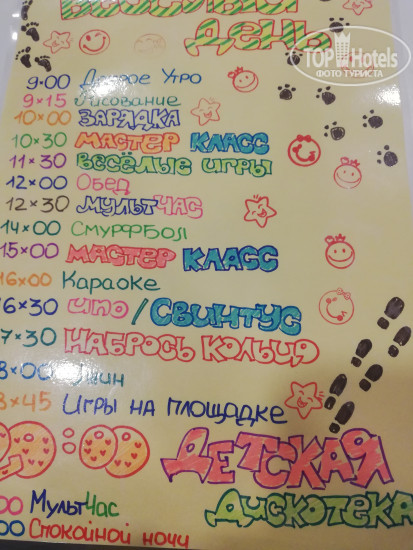 TOP Hotels
ФОТО ТУРИСТА
ДЕНЬ
9:00 Доброе Утро
9×15 Рисование
10×00 ЗАРЯДКА
10×30 МАСТЕР КЛАСС
11×30 ВЕСЁЛЫЕ ИГРЫ
12×00 Обед
12×30 МУЛЬТЧАС
14×00 СМУРФБОЛ
15×00 МАСТЕР КЛАСС
16×00 Караоке
16×30 УНО / СВИНТУС
7×30 НАБРОСЬ КОЛЬЦО
8×00
8×45 ИГРЫ НА ПЛОЩАДКЕ
:00 ДЕТСКАЯ
ДИСКОТЕКА
00 МультЧас
00 Спокойной ночи